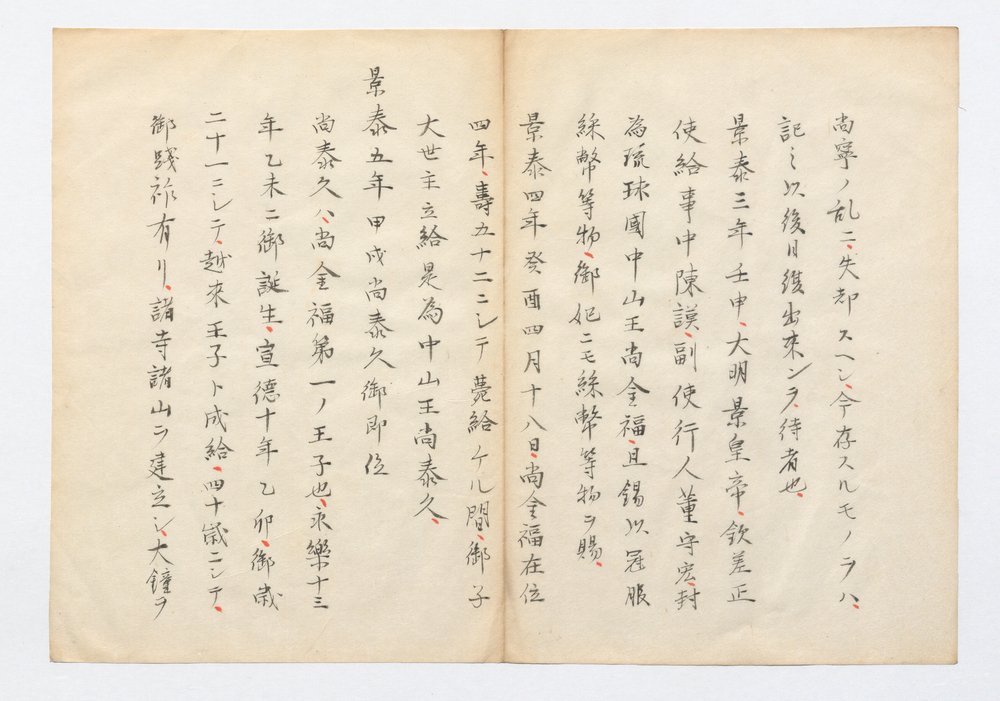 尚寧ノ乱ニ、失却スヘシ、今存スルモノヲハ、
記シ以後日復出来ンヲ、待者也、
景泰三年壬申、大明景皇帝、欽差正
使給事中陳謨、副使行人董守宏、封
為琉球國中山王尚金福、且錫以冠服
綵幣等物、御妃ニモ綵幣等物ヲ賜、
景泰四年癸酉四月十八日、尚金福在位
四年、壽五十二ニシテ薨給ケル間、御子
大世主立給是為中山王尚泰久、
景泰五年甲戌尚泰久御即位
尚泰久ハ、尚金福第一ノ王子也、永樂十三
年乙未ニ御誕生、宣德十年乙卯、御歳
二十一ニシテ、越來王子ト成給、四十歳ニシテ、
御踐祚有リ、諸寺諸山ヲ建立シ、大鐘ヲ